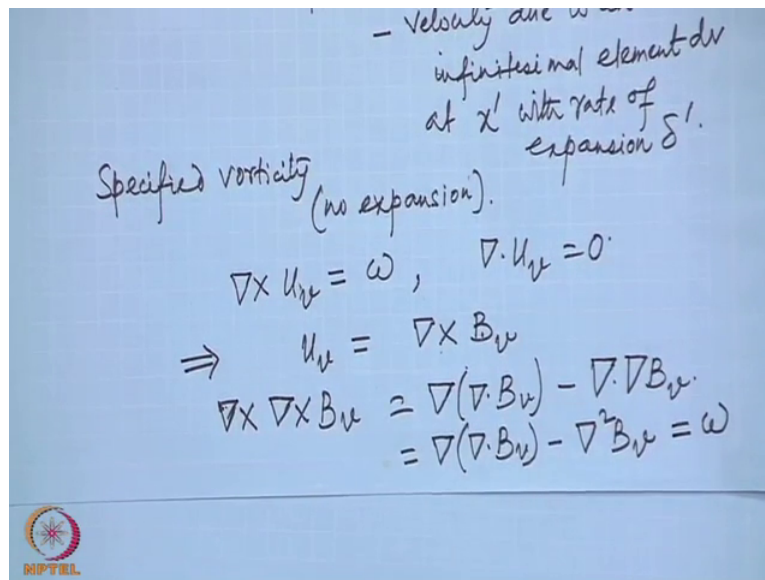 - velocity due
infinitesimal element dv
at x' with rate of
expansion δ'.
Specified vorticity
(no expansion).
∇× u_v = ω , ∇·u_v = 0·
⇒ u_v = ∇× B_v
∇× ∇× B_v = ∇(∇·B_v) - ∇·∇B_v.
= ∇(∇·B_v) - ∇²B_v = ω
NPTEL